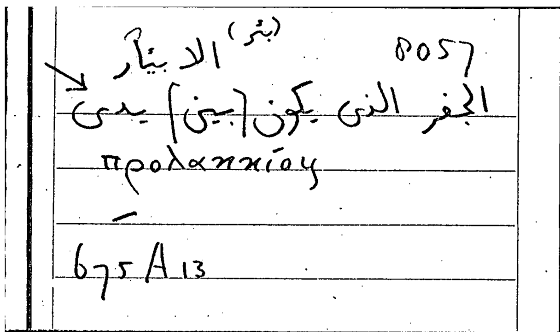 (بئر) 8057
الابيآر
الجفر الذى يكون [بين] يدى
προλακκίου
675 A 13